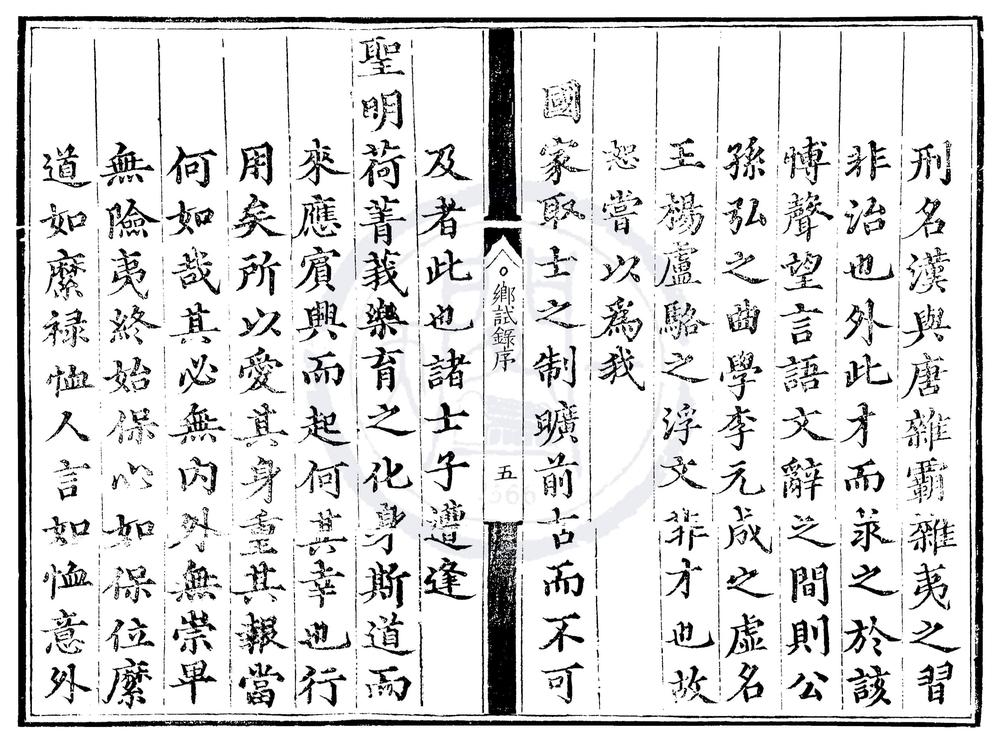 刑名漢與唐雜霸雜夷之習
非治也外此才而求之於該
博聲望言語文辭之間則公
孫弘之曲學李元成之虛名
王楊盧駱之浮文非才也故
恕嘗以爲我
國家取士之制曠前古而不可
鄉試錄序
五
及者此也諸士子遭逢
聖明荷菁莪樂育之化身斯道而
來應賓興而起何其幸也行
用矣所以愛其身重其報當
何如哉其必無內外無崇卑
無險夷終始保心如保位縻
道如縻祿恤人言如恤意外